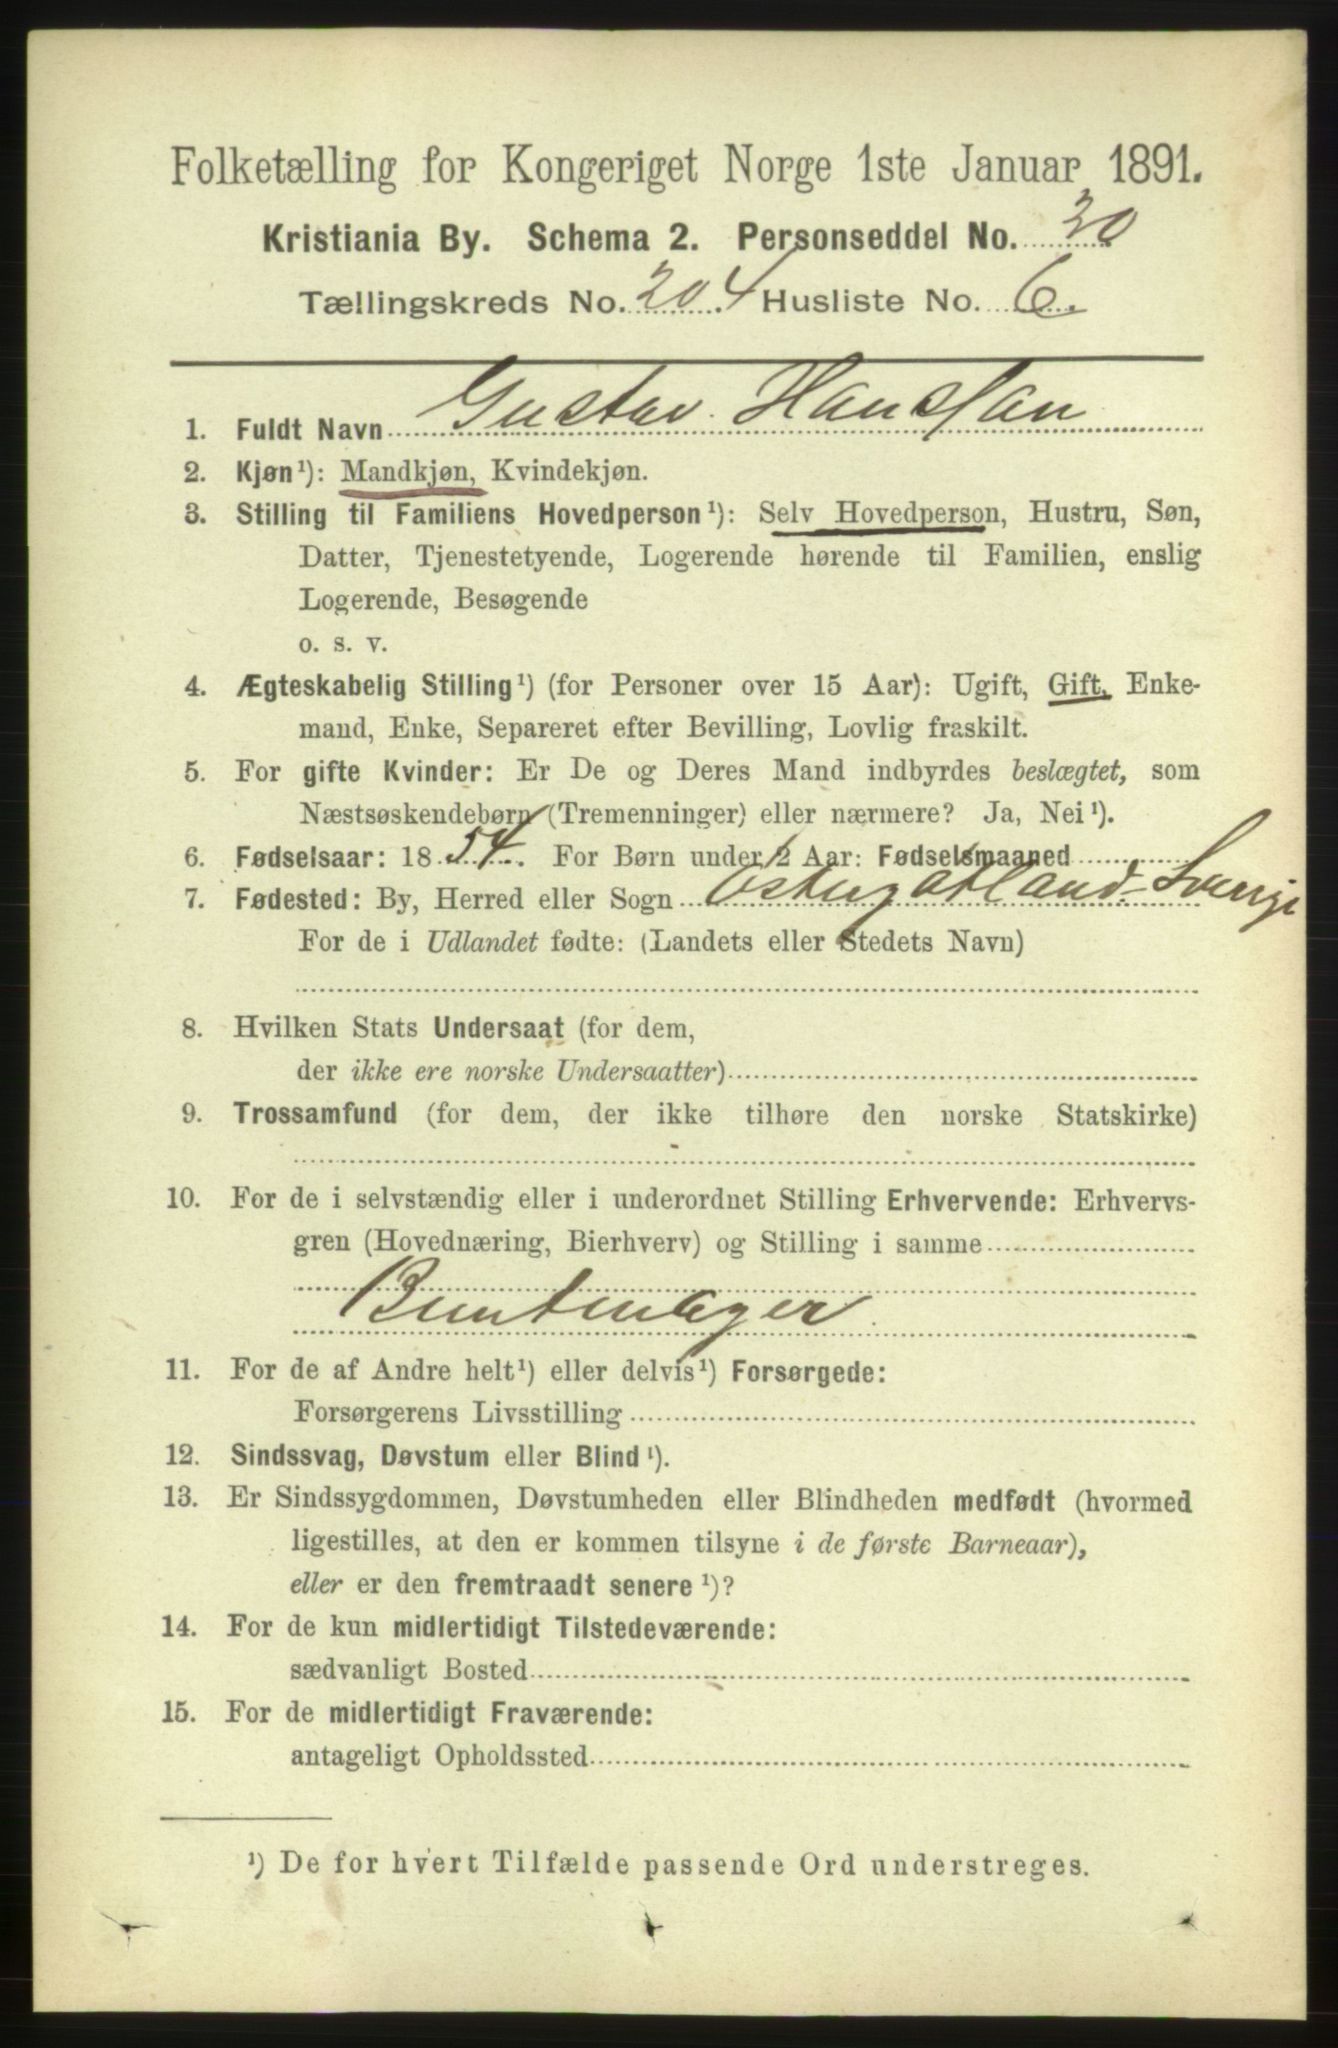 Folketælling for Kongeriget Norge 1ste Januar 1891.
Kristiania By. Schema 2. Personseddel No. 30
Tællingskreds No. 204 Husliste No. 6.
1. Fuldt Navn Gustav Hansson
2. Kjøn¹): Mandkjøn, Kvindekjøn.
3. Stilling til Familiens Hovedperson¹): Selv Hovedperson, Hustru, Søn,
Datter, Tjenestetyende, Logerende hørende til Familien, enslig
Logerende, Besøgende
o. s. v.
4. Ægteskabelig Stilling¹) (for Personer over 15 Aar): Ugift, Gift, Enke-
mand, Enke, Separeret efter Bevilling, Lovlig fraskilt.
5. For gifte Kvinder: Er De og Deres Mand indbyrdes beslægtet, som
Næstsøskendebørn (Tremenninger) eller nærmere? Ja, Nei¹).
6. Fødselsaar: 1854. For Børn under 2 Aar: Fødselsmaaned
7. Fødested: By, Herred eller Sogn Østergøtland. Sverige
For de i Udlandet fødte: (Landets eller Stedets Navn)
8. Hvilken Stats Undersaat (for dem,
der ikke ere norske Undersaatter)
9. Trossamfund (for dem, der ikke tilhøre den norske Statskirke)
10. For de i selvstændig eller i underordnet Stilling Erhvervende: Erhvervs-
gren (Hovednæring, Bierhverv) og Stilling i samme
Buntmager
11. For de af Andre helt¹) eller delvis¹) Forsørgede:
Forsørgerens Livsstilling
12. Sindssvag, Døvstum eller Blind¹).
13. Er Sindssygdommen, Døvstumheden eller Blindheden medfødt (hvormed
ligestilles, at den er kommen tilsyne i de første Barneaar),
eller er den fremtraadt senere¹)?
14. For de kun midlertidigt Tilstedeværende:
sædvanligt Bosted
15. For de midlertidigt Fraværende:
antageligt Opholdssted
¹) De for hvert Tilfælde passende Ord understreges.